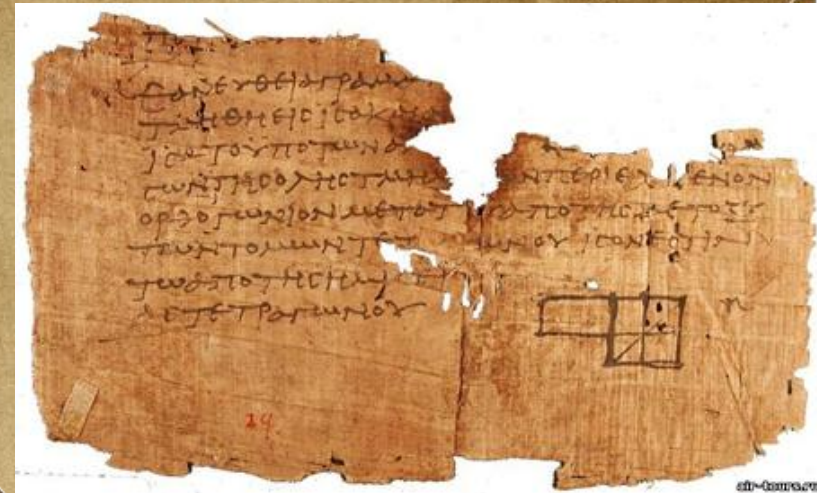 ΕΑΝΕΥΘΕΙΑΓΡΑΜΜ
ΤΜΗΘΗΕΙϹΙϹΑΚΑΙΑΝ
ΙϹΑΤΟΥΠΟΤΩΝΑ
ΤΩΝΤΗϹΟΛΗϹΤΜΗ ΝΠΕΡΙΕΧ ΜΕΝΟΝ
ΟΡΘΟΓΩΝΙΟΝΜΕΤΑΤΟΥ ΑΠΟΤΗϹΜΕΤΟΞΥ
ΤΩΝΤΟΜΩΝΤΕΤ ΩΝΟΥΙϹΟΝΕϹΤΙΝ
ΤΩΑΠΟΤΗϹΗΜΙ
ΤΕΤΡΑΓΩΝΟΥ
29
air-tours.ru